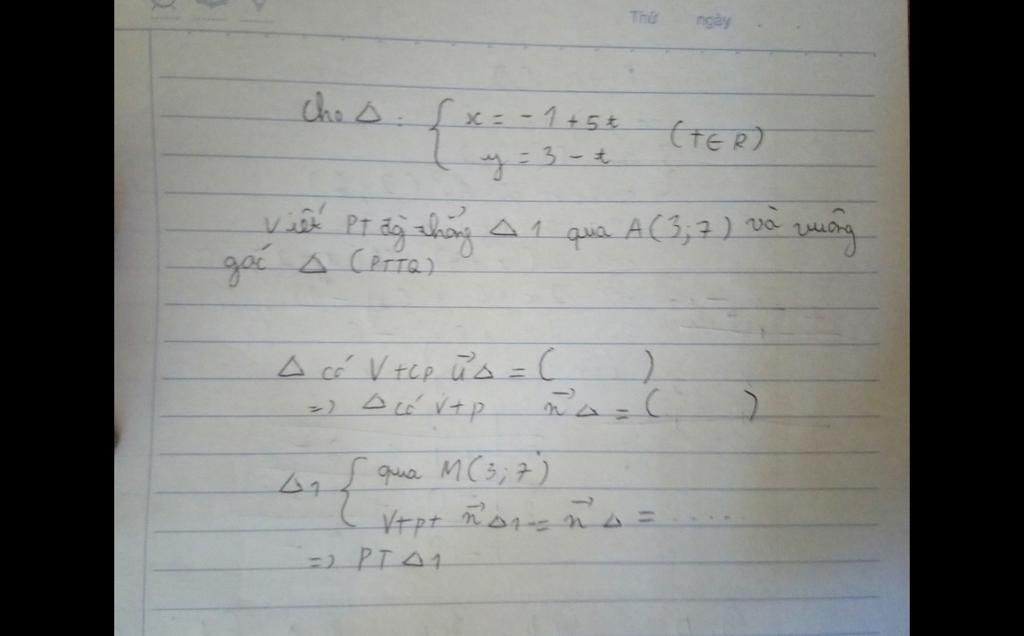 Thứ ngày
Cho Δ : { x = -1 + 5t
y = 3 - t (t ∈ R)
Viết PT đg thẳng Δ1 qua A(3;7) và vuông
góc Δ (PTTQ)
Δ có Vtcp u⃗Δ = ( )
=> Δ có Vtp n⃗Δ = ( )
Δ1 { qua M(3;7)
Vtpt n⃗Δ1 = n⃗Δ = .....
=> PT Δ1